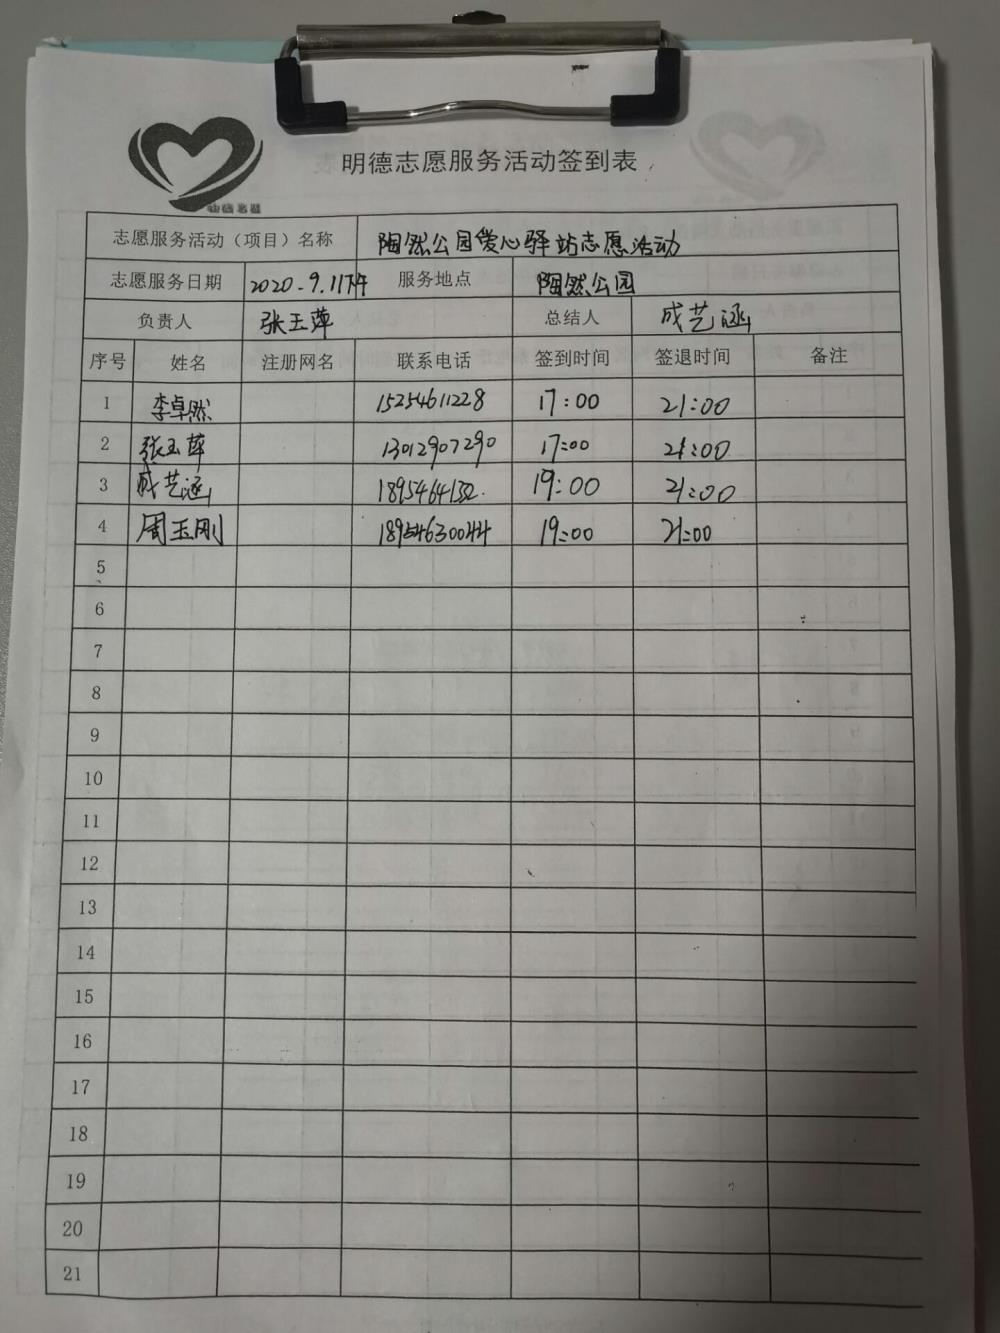 明德志愿服务活动签到表
明德志愿
志愿服务活动（项目）名称 陶然公园爱心驿站志愿活动
志愿服务日期 2020.9.11下午 服务地点 陶然公园
负责人 张玉萍 总结人 成艺涵
序号 姓名 注册网名 联系电话 签到时间 签退时间 备注
1 李卓然 15254611228 17:00 21:00
2 张玉萍 13012907290 17:00 21:00
3 成艺涵 19:00 21:00
4 周玉刚 18954630044 19:00 21:00
5
6
7
8
9
10
11
12
13
14
15
16
17
18
19
20
21